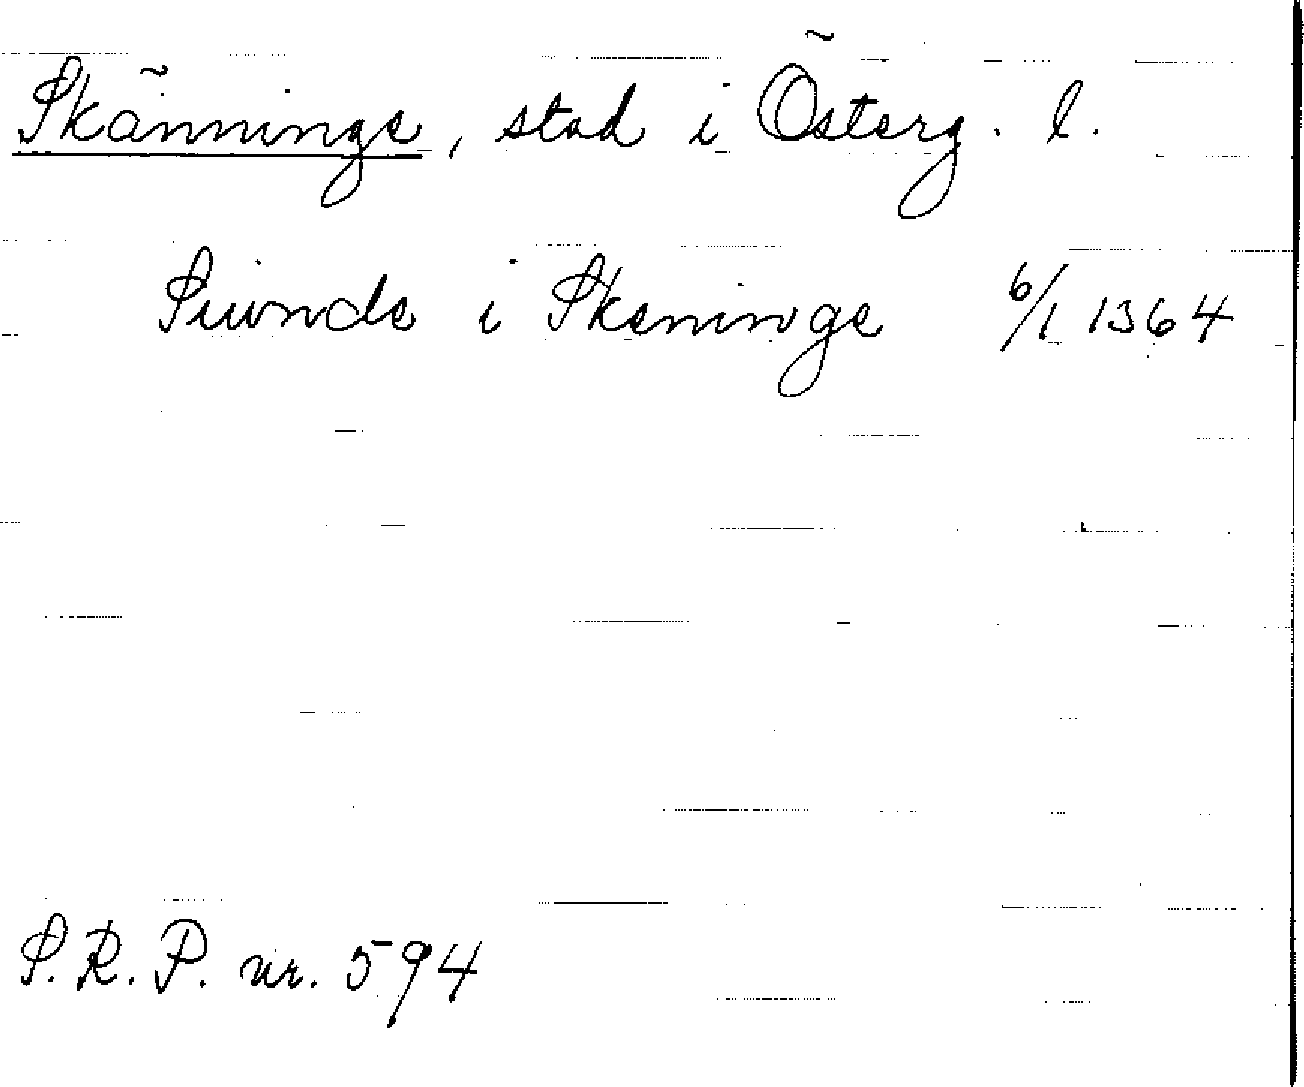 Skänninge, stad i Österg. l.
Siunde i Skeninge 6/1 1364
S.R.P. nr. 594